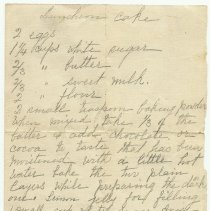 Luncheon Cake
2 eggs
1¼ cups white sugar
2/3 " butter
2/3 " sweet milk.
2 " flour
2 small teaspoon baking powder
when mixed take 1/3 of the
batter & add chocolate or
cocoa to taste that has been
moistened with a little hot
water bake the two plain
layers while preparing the dark
one & lemon jelly for filling